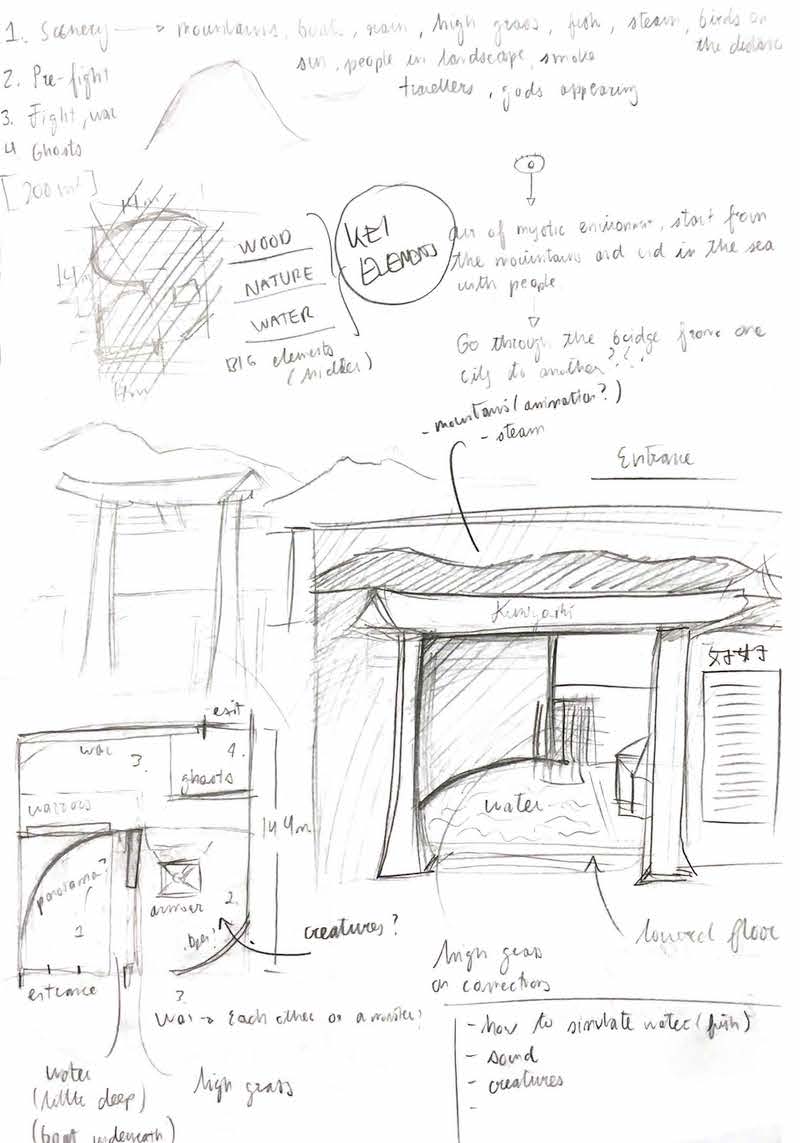 1. Scenery → mountains, boat, rain, high grass, fish, steam, birds on
the distance
sun, people in landscape, smoke
travellers, gods appearing
2. Pre-fight
3. Fight, war
4 Ghosts
[200 m²]
14m
14m
14m
WOOD
NATURE
WATER
KEY
ELEMENTS
BIG elements
(middle)
air of mystic environment, start from
the mountains and end in the sea
with people
Go through the bridge from one
city to another???
- mountains (animation?)
- steam
Entrance
Kuniyoshi
water
exit
war
3.
4.
ghosts
warriors
14.4m
panorama?
1
armour
2.
creatures?
entrance
?
War → Each other or a monster?
water
(little deep)
(boat underneath)
high grass
high grass
on corrections
lowered floor
- how to simulate water (fish)
- sound
- creatures
-